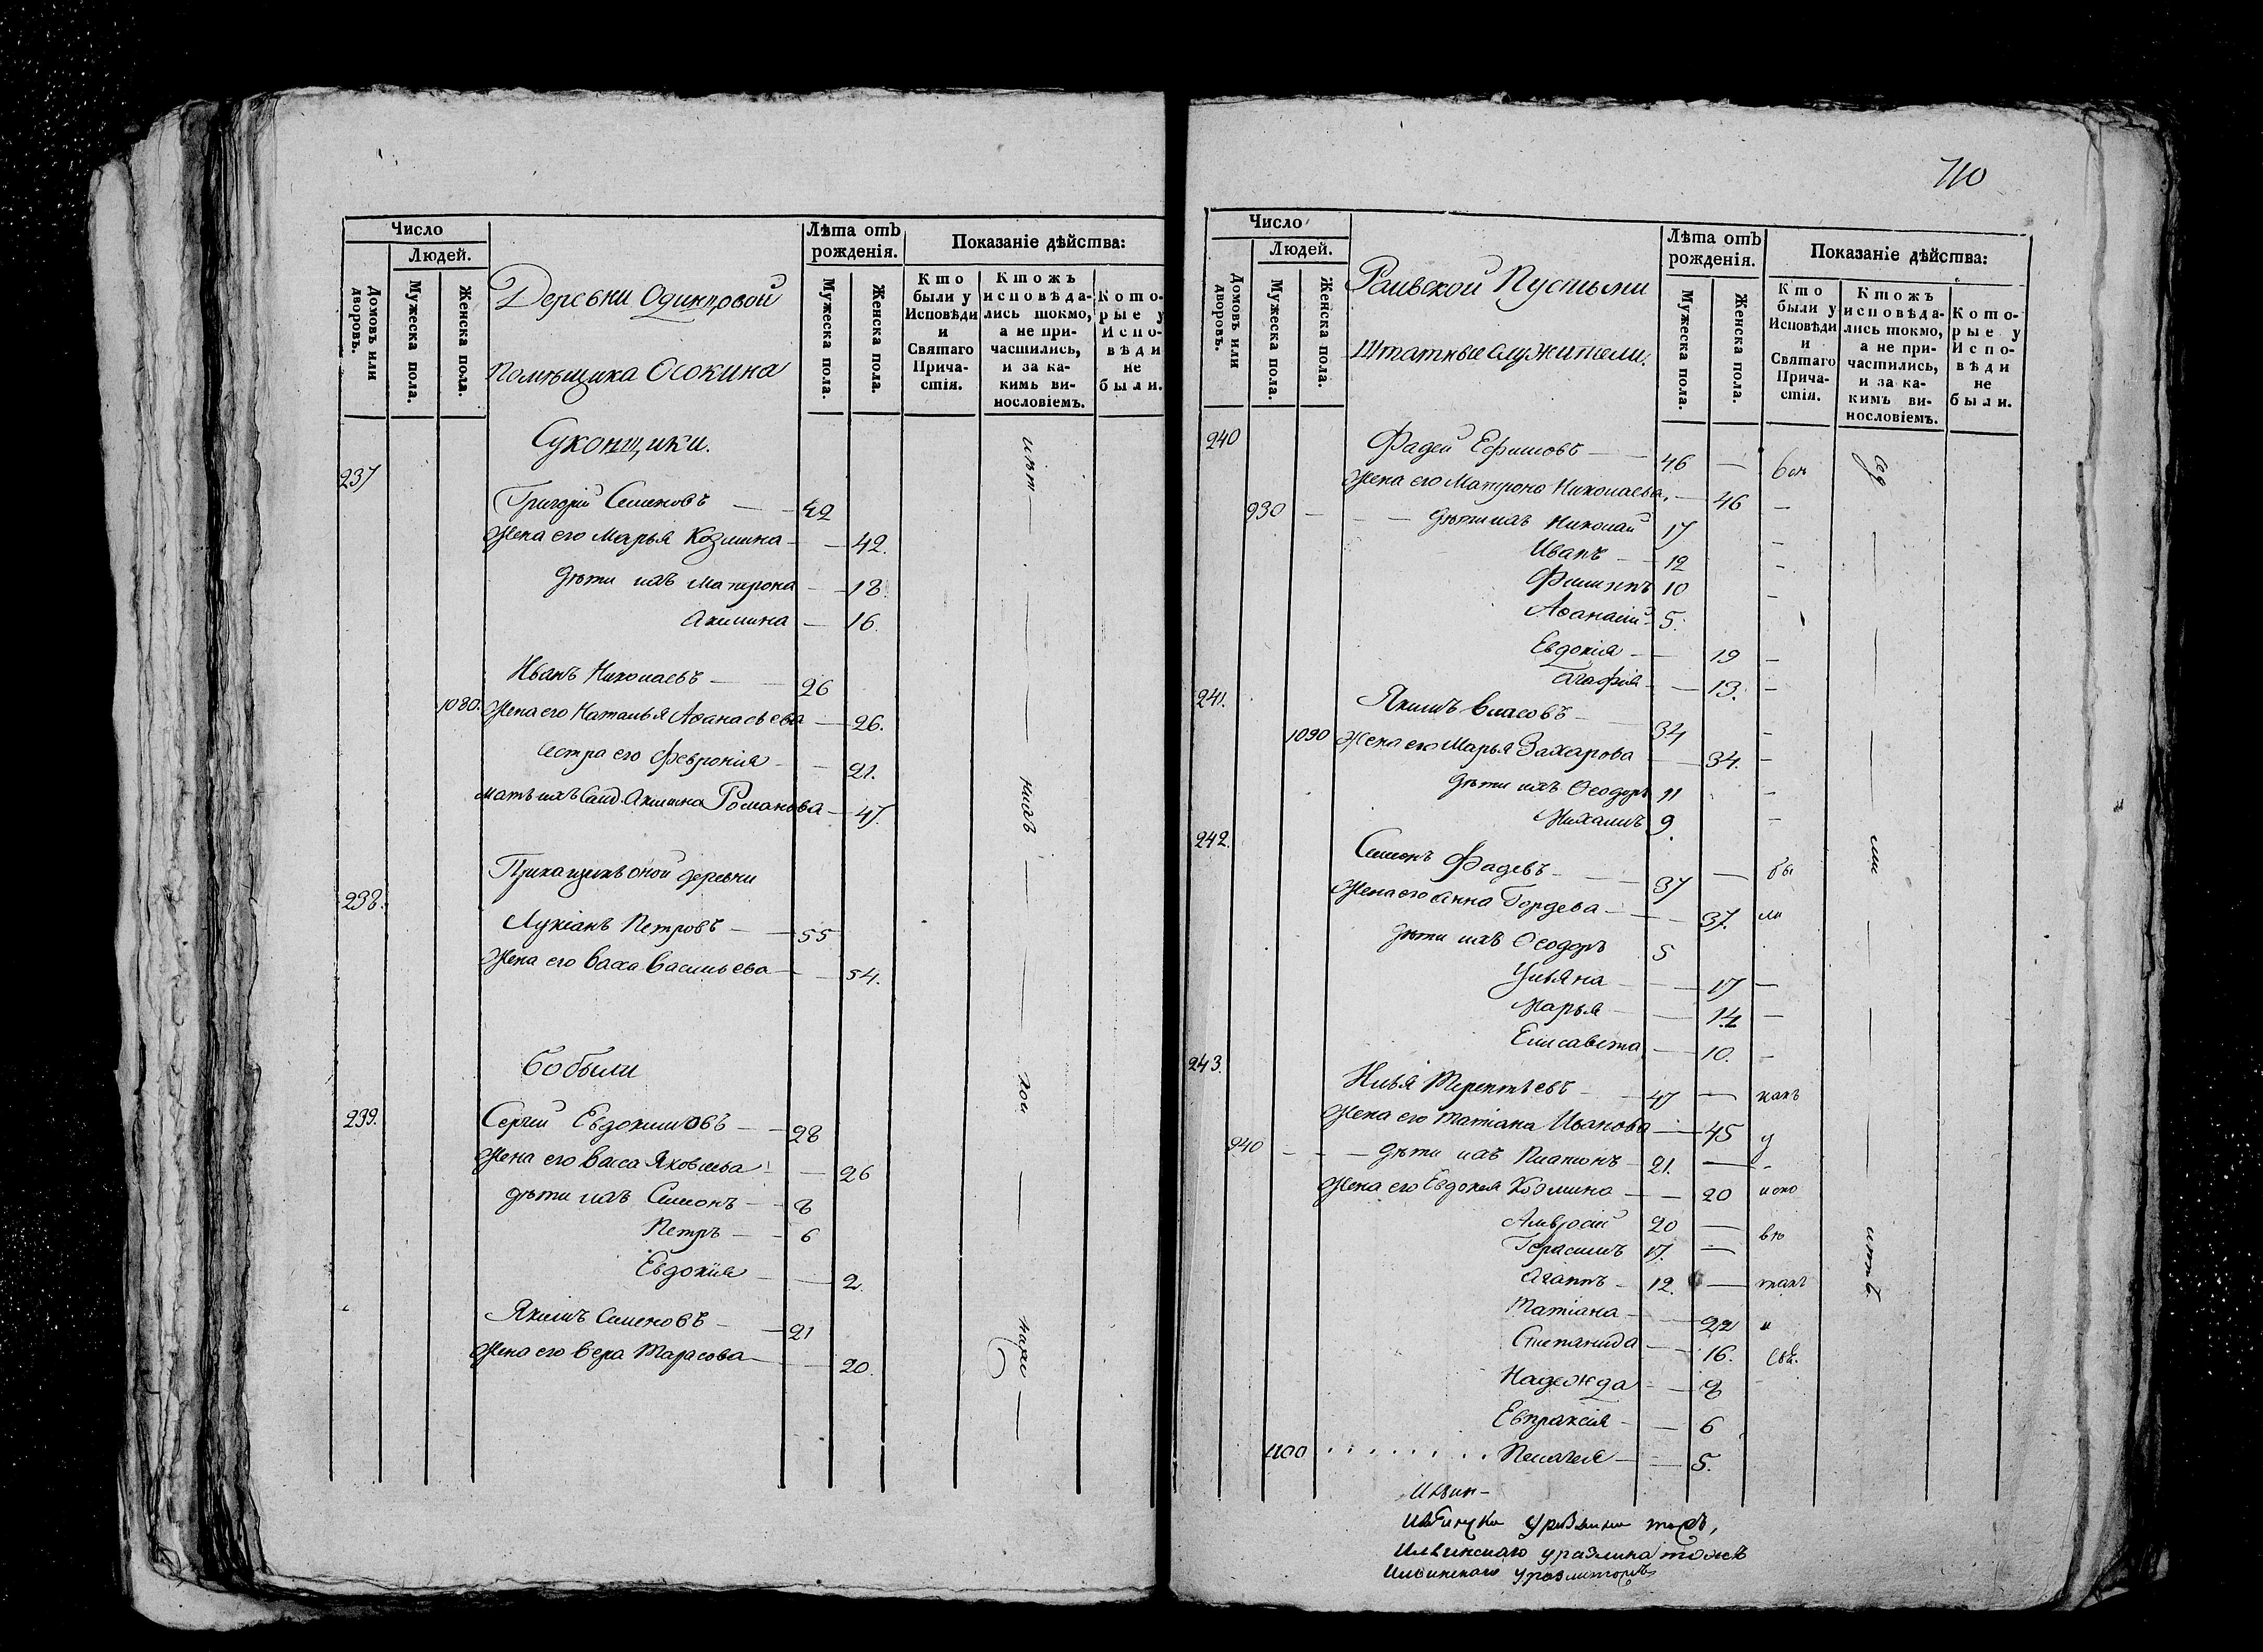 710
Число
Людей.
Домовъ или дворовъ.
Мужеска пола.
Женска пола.
Деревни Одинцовой
Помѣщика Осокина
Лѣта отъ рожденія.
Мужеска пола.
Женска пола.
Показаніе дѣйства:
Кто были у Исповѣди и Святаго Причастія.
Ктожъ исповѣдались токмо, а не причастились, и за какимъ винословіемъ.
Которые у Исповѣди не были.
Суконщики.
237
Григорій Семеновъ — 42
Жена его Марья Козмина — 42.
дѣти ихъ Матрона — 18
Акилина — 16.
Иванъ Николаевъ — 26
1080. Жена его Наталья Аѳанасьева — 26.
Сестра его Феврония — 21.
мать ихъ Акилина Романова — 47.
Прикащикъ оной деревни
238.
Лукіанъ Петровъ — 55
Жена его Васса Васильева — 54.
Бобыли
239. Сергѣй Евдокимовъ — 28
Жена его Васса Яковлева — 26
дѣти ихъ Симеонъ — 8
Петръ — 6
Евдокія — 2
Якимъ Семеновъ — 21
Жена его Вера Тарасова — 20.
Число
Людей.
Домовъ или дворовъ.
Мужеска пола.
Женска пола.
Раивской Пустыни
Штатные Служители.
Лѣта отъ рожденія.
Мужеска пола.
Женска пола.
Показаніе дѣйства:
Кто были у Исповѣди и Святаго Причастія.
Ктожъ исповѣдались токмо, а не причастились, и за какимъ винословіемъ.
Которые у Исповѣди не были.
240 Фадей Ефимовъ — 46
Жена его Матрона Николаева — 46
930 дѣти ихъ Николай 17
Иванъ — 12
Филиппъ 10
Аѳанасій 5.
Евдокія — 19
Агафія — 13.
241. Якимъ Власовъ — 34
1090 Жена его Марья Захарова — 34.
дѣти ихъ Ѳеодоръ 11
Михаилъ 9
242. Симеонъ Фадевъ — 37 бы
Жена его Анна Гордева — 37. ли
дѣти ихъ Ѳеодоръ 5
Ульяна — 17
Марья — 14
Елисавета — 10.
243. Илья Терентьевъ — 47
Жена его Татіана Иванова — 45 у
940 дѣти ихъ Платонъ — 21.
Жена его Евдокея Козмина — 20 испо
Амвросій 20
Герасимъ 17.
Агапъ — 12. такъ
Татіана — 22 и
Степанида — 16.
Надежда — 8
Евпраксія — 6
1100 Пелагея — 5.